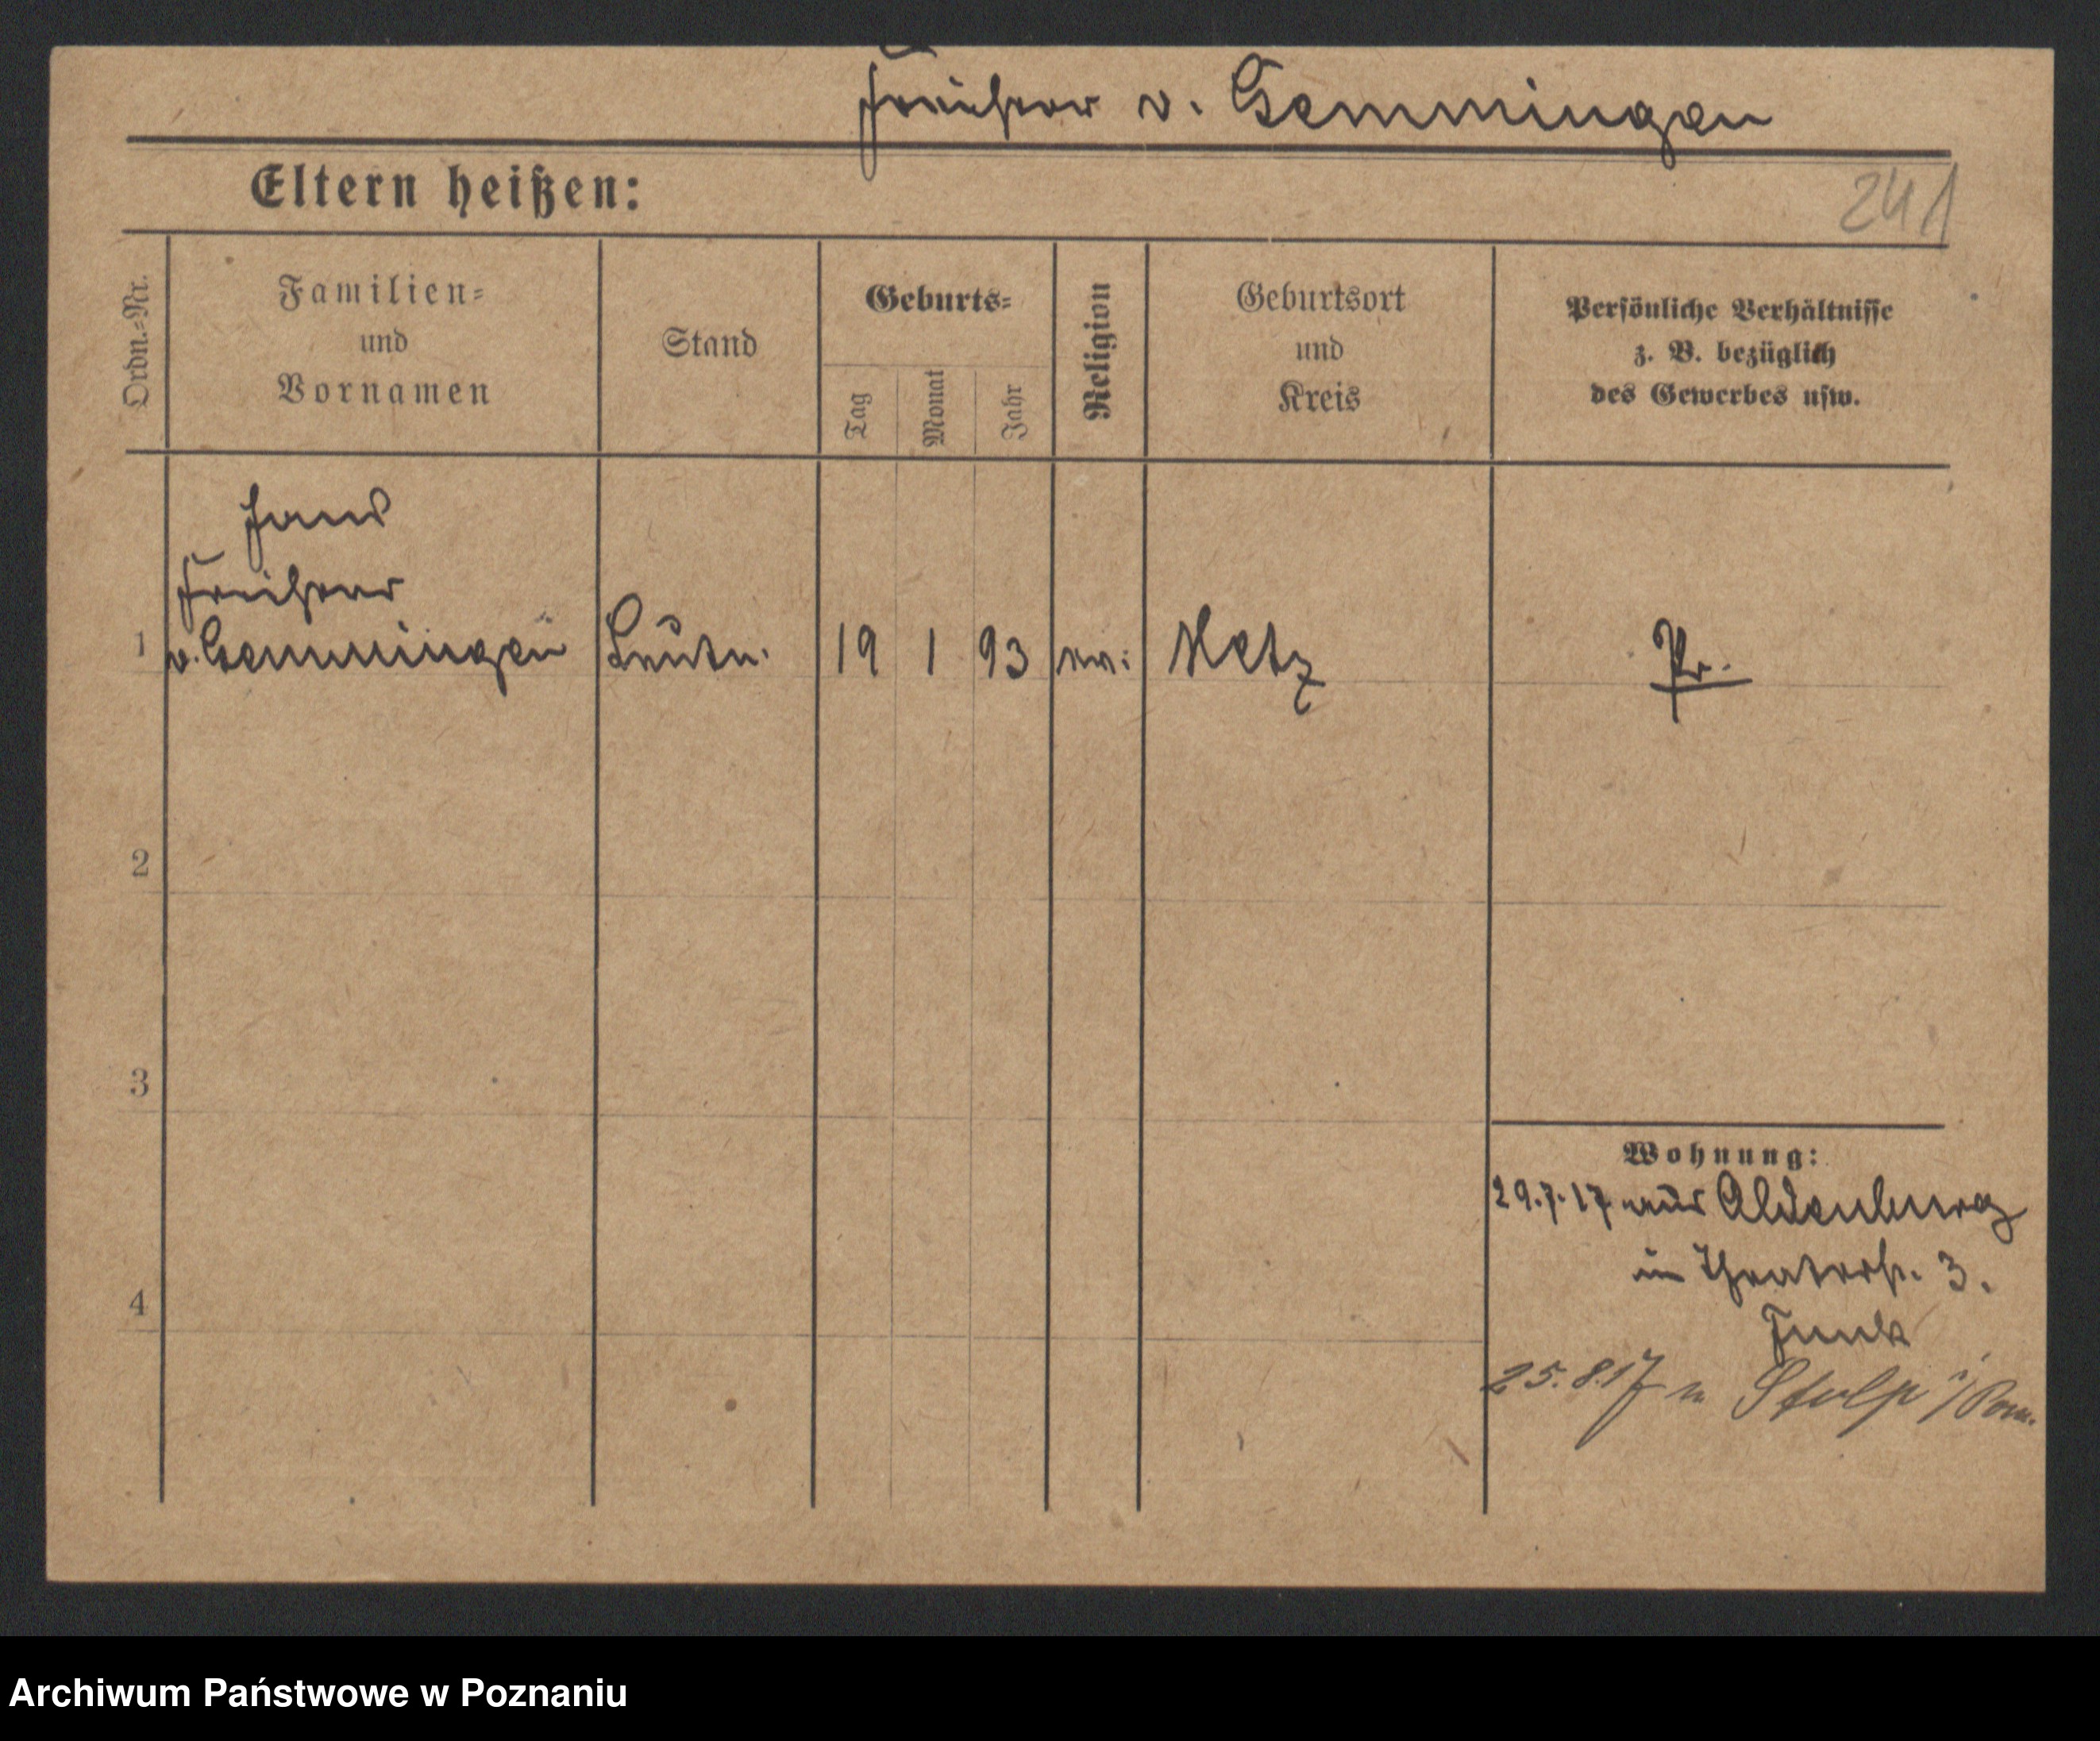 Freiherr v. Gemmingen
Eltern heißen:
241
Ordn.=Nr.
Familien=
und
Vornamen
Stand
Geburts=
Tag
Monat
Jahr
Religion
Geburtsort
und
Kreis
Persönliche Verhältnisse
z. B. bezüglich
des Gewerbes usw.
Hans
Freiherr
1 v. Gemmingen Leutn. 19 1 93 ev: Metz Pr.
2
3
4
Wohnung:
29.7.17 aus Aldenburg
in Theaterstr. 3.
Funk
25.8.17 n Stolp i/Pom.
Archiwum Państwowe w Poznaniu